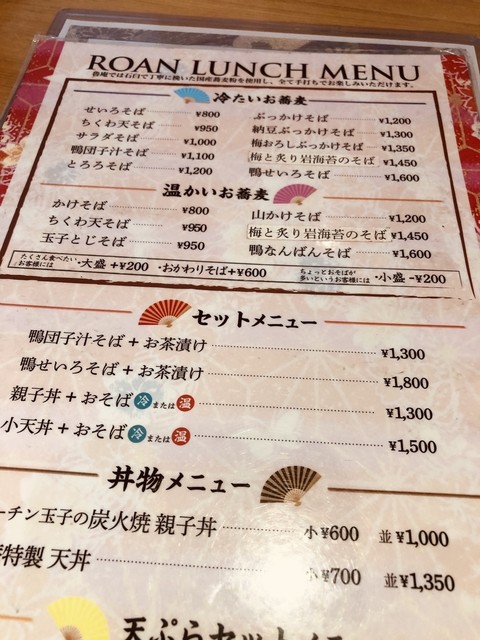 ROAN LUNCH MENU
蕎庵では石臼で丁寧に挽いた国産蕎麦粉を使用し、全て手打ちでお楽しみいただけます。
冷たいお蕎麦
せいろそば ¥800
ちくわ天そば ¥950
サラダそば ¥1,000
鴨団子汁そば ¥1,100
とろろそば ¥1,200
ぶっかけそば ¥1,200
納豆ぶっかけそば ¥1,300
梅おろしぶっかけそば ¥1,350
梅と炙り岩海苔のそば ¥1,450
鴨せいろそば ¥1,600
温かいお蕎麦
かけそば ¥800
ちくわ天そば ¥950
玉子とじそば ¥950
山かけそば ¥1,200
梅と炙り岩海苔のそば ¥1,450
鴨なんばんそば ¥1,600
たくさん食べたいお客様には ・大盛+¥200 ・おかわりそば+¥600
ちょっとおそばが多いというお客様には ・小盛-¥200
セットメニュー
鴨団子汁そば + お茶漬け ¥1,300
鴨せいろそば + お茶漬け ¥1,800
親子丼 + おそば 冷 または 温 ¥1,300
小天丼 + おそば 冷 または 温 ¥1,500
丼物メニュー
ーチン玉子の炭火焼 親子丼 小 ¥600 並 ¥1,000
特製 天丼 小 ¥700 並 ¥1,350
天ぷらセットメニュー